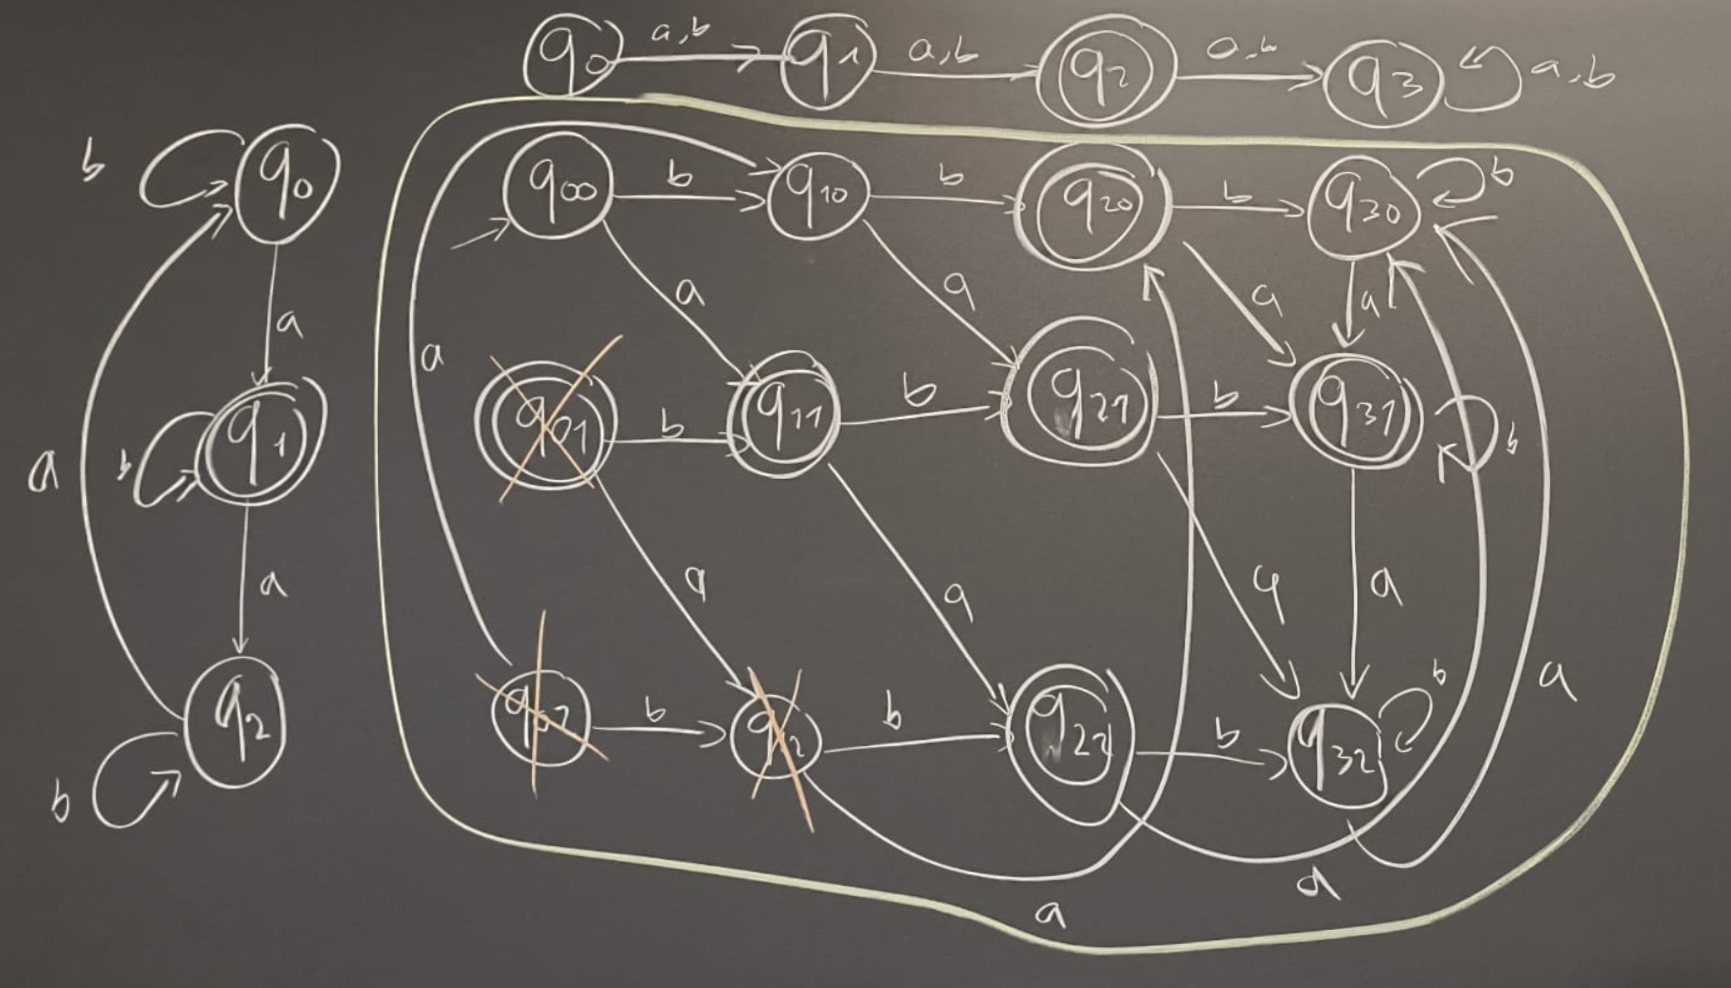 q0 a,b q1 a,b q2 a,b q3 a,b
b q0 q00 b q10 b q20 b q30 b
a a a a a
a
a b q1 q01 b q11 b q21 b q31 b
a a a a a
b q2 q02 b q12 b q22 b q32 b a
a a